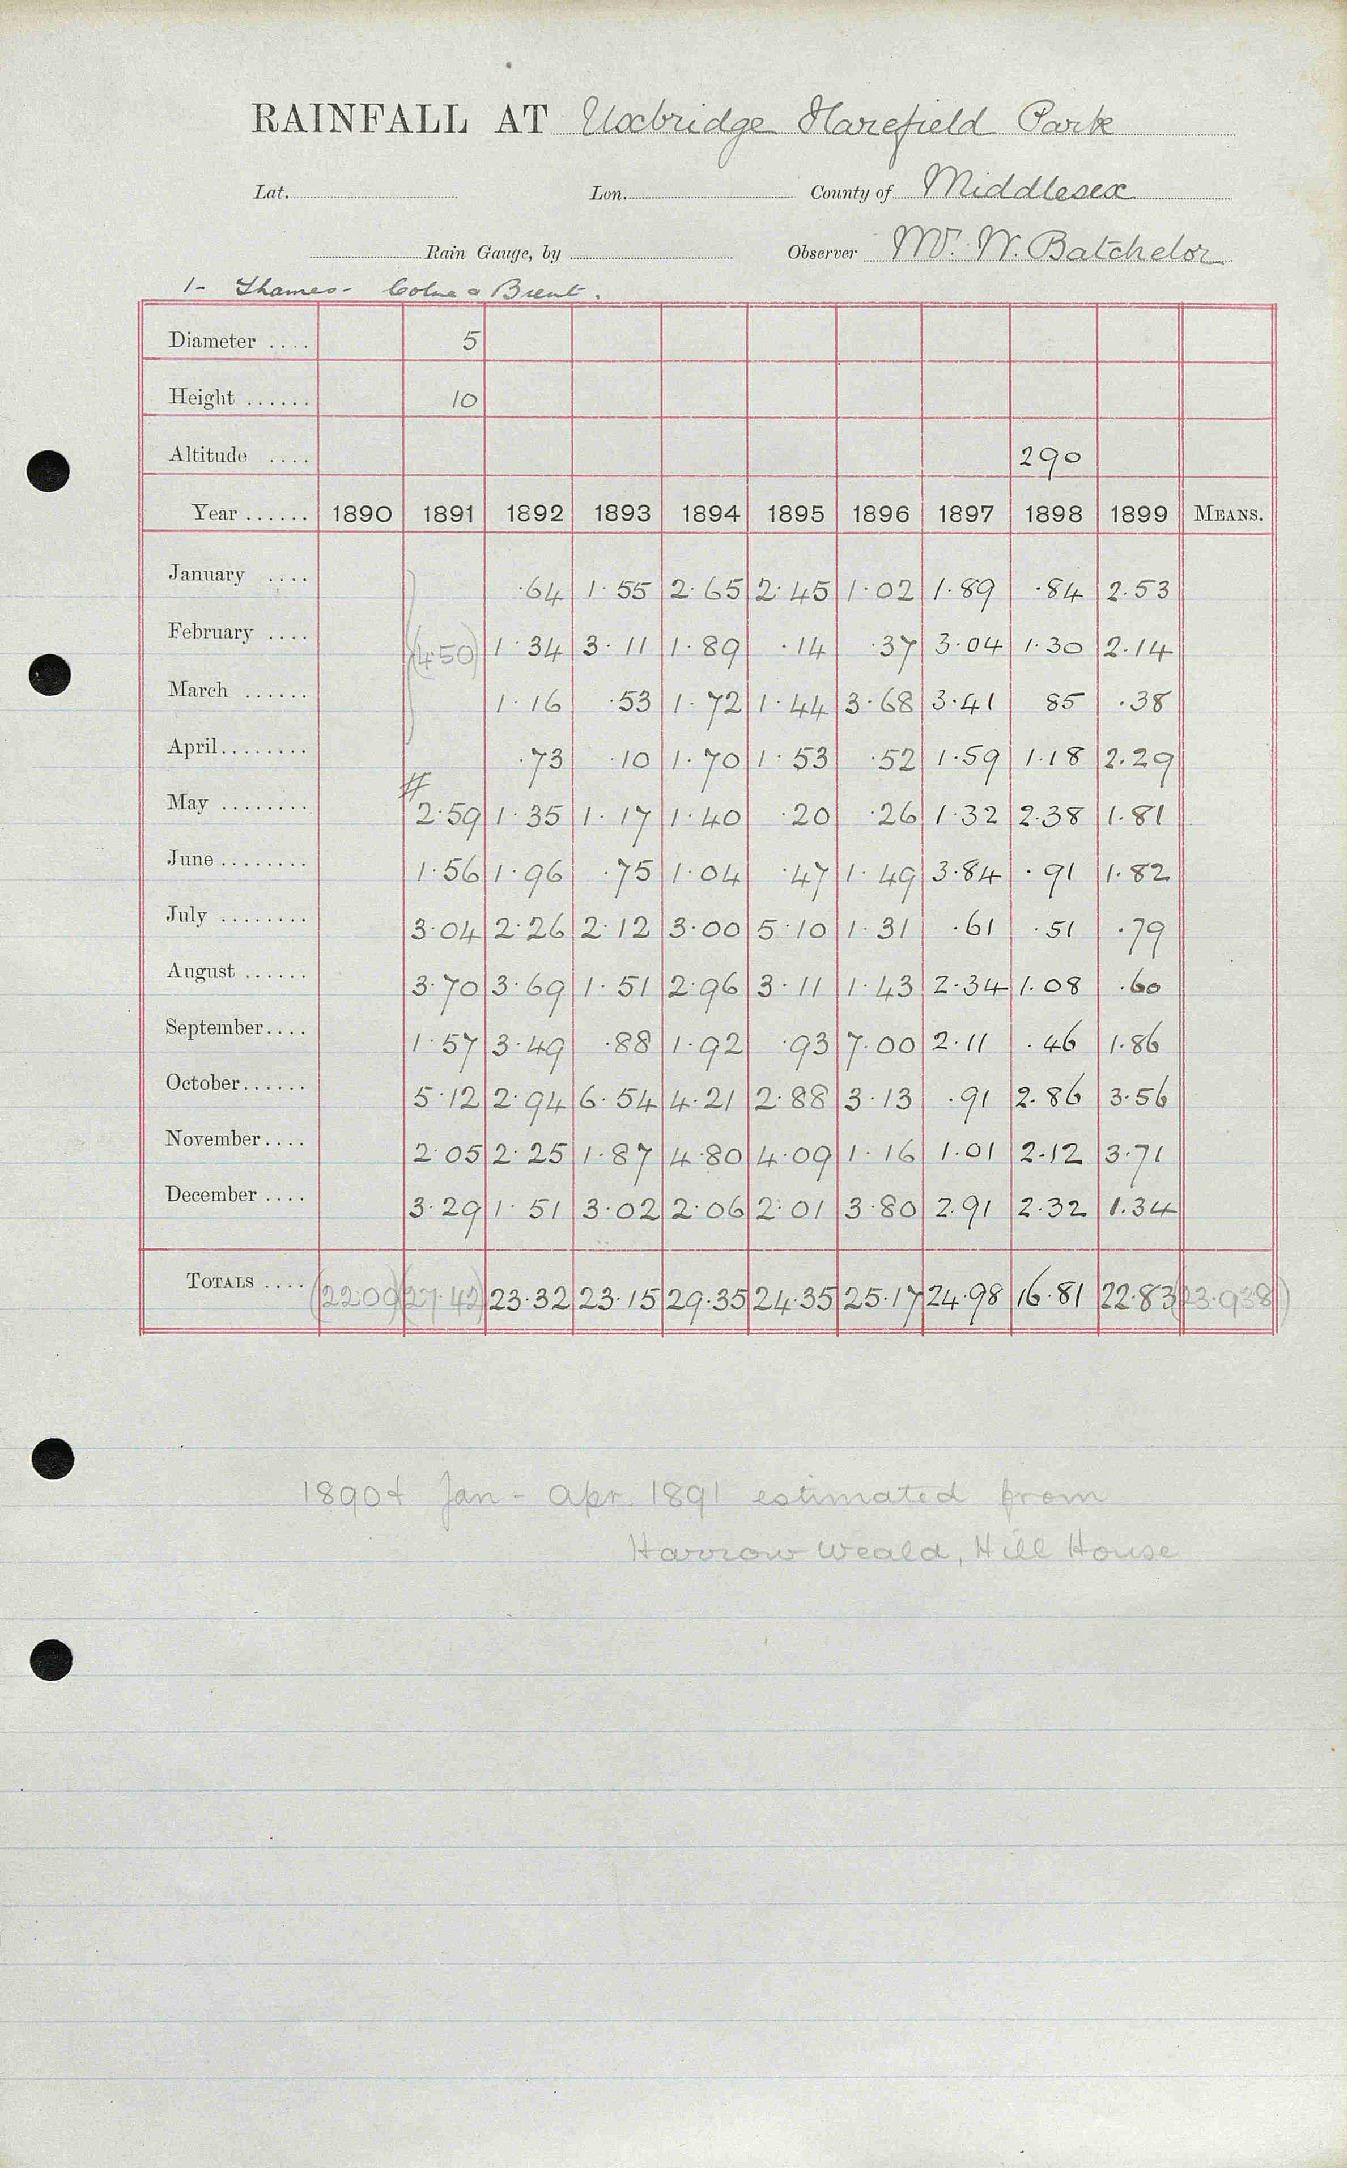 RAINFALL AT Uxbridge Harefield Park
Lat. Lon. County of Middlesex
Rain Gauge, by Observer Mr. W. Batchelor
1- Thames- Colne & Brent.
Diameter .... 5
Height ...... 10
Altitude .... 290
Year ...... 1890 1891 1892 1893 1894 1895 1896 1897 1898 1899 MEANS.
January .... ·64 1·55 2·65 2·45 1·02 1·89 ·84 2·53
February .... (4·50) 1·34 3·11 1·89 ·14 ·37 3·04 1·30 2·14
March ...... 1·16 ·53 1·72 1·44 3·68 3·41 85 ·38
April........ ·73 ·10 1·70 1·53 ·52 1·59 1·18 2·29
May ........ # 2·59 1·35 1·17 1·40 ·20 ·26 1·32 2·38 1·81
June ........ 1·56 1·96 ·75 1·04 ·47 1·49 3·84 ·91 1·82
July ........ 3·04 2·26 2·12 3·00 5·10 1·31 ·61 ·51 ·79
August ...... 3·70 3·69 1·51 2·96 3·11 1·43 2·34 1·08 ·60
September.... 1·57 3·49 ·88 1·92 ·93 7·00 2·11 ·46 1·86
October...... 5·12 2·94 6·54 4·21 2·88 3·13 ·91 2·86 3·56
November.... 2·05 2·25 1·87 4·80 4·09 1·16 1·01 2·12 3·71
December .... 3·29 1·51 3·02 2·06 2·01 3·80 2·91 2·32 1·34
TOTALS .... (22·09) (27·42) 23·32 23·15 29·35 24·35 25·17 24·98 16·81 22·83 (23·938)
1890 & Jan - Apr. 1891 estimated from
Harrow Weald, Hill House